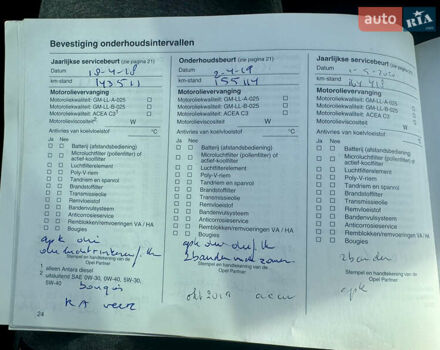 auto RIA.com
Bevestiging onderhoudsintervallen
Jaarlijkse servicebeurt (zie pagina 21)
Datum 18-4-18
km-stand 143511
Motorolievervanging
Motoroliekwaliteit: GM-LL-A-025
Motoroliekwaliteit: GM-LL-B-025
Motoroliekwaliteit: ACEA C3
Motorolieviscositeit W
Antivries van koelvloeistof °C
Ja Nee
Batterij (afstandsbediening)
Microluchtfilter (pollenfilter) of
actief-koolfilter
Luchtfilterelement
Poly-V-riem
Tandriem en spanrol
Brandstoffilter
Transmissieolie
Remvloeistof
Bandenvulsysteem
Anticorrosieservice
Remblokken/remvoeringen VA / HA
Bougies
apk
Stempel en handtekening van de
Opel Partner
1 alleen Antara diesel
2 uitsluitend SAE 0W-30, 0W-40, 5W-30,
5W-40
bougies
24
Onderhoudsbeurt (zie pagina 21)
Datum 2-4-19
km-stand 155114
Motorolievervanging
Motoroliekwaliteit: GM-LL-A-025
Motoroliekwaliteit: GM-LL-B-025
Motoroliekwaliteit: ACEA C3
Motorolieviscositeit W
Antivries van koelvloeistof °C
Ja Nee
Batterij (afstandsbediening)
Microluchtfilter (pollenfilter) of
actief-koolfilter
Luchtfilterelement
Poly-V-riem
Tandriem en spanrol
Brandstoffilter
Transmissieolie
Remvloeistof
Bandenvulsysteem
Anticorrosieservice
Remblokken/remvoeringen VA / HA
Bougies
apk
2 banden
Stempel en handtekening van de
Opel Partner
okt 2019
Jaarlijkse servicebeurt (zie
Datum
km-stand
Motorolievervanging
Motoroliekwaliteit: GM-LL-A-025
Motoroliekwaliteit: GM-LL-B-025
Motoroliekwaliteit: ACEA C3
Motorolieviscositeit W
Antivries van koelvloeistof
Ja Nee
Batterij (afstandsbediening)
Microluchtfilter (pollenfilter) of
actief-koolfilter
Luchtfilterelement
Poly-V-riem
Tandriem en spanrol
Brandstoffilter
Transmissieolie
Remvloeistof
Bandenvulsysteem
Anticorrosieservice
Remblokken/remvoeringen VA
Bougies
2 banden
Stempel en handtekening van de
Opel Partner
apk